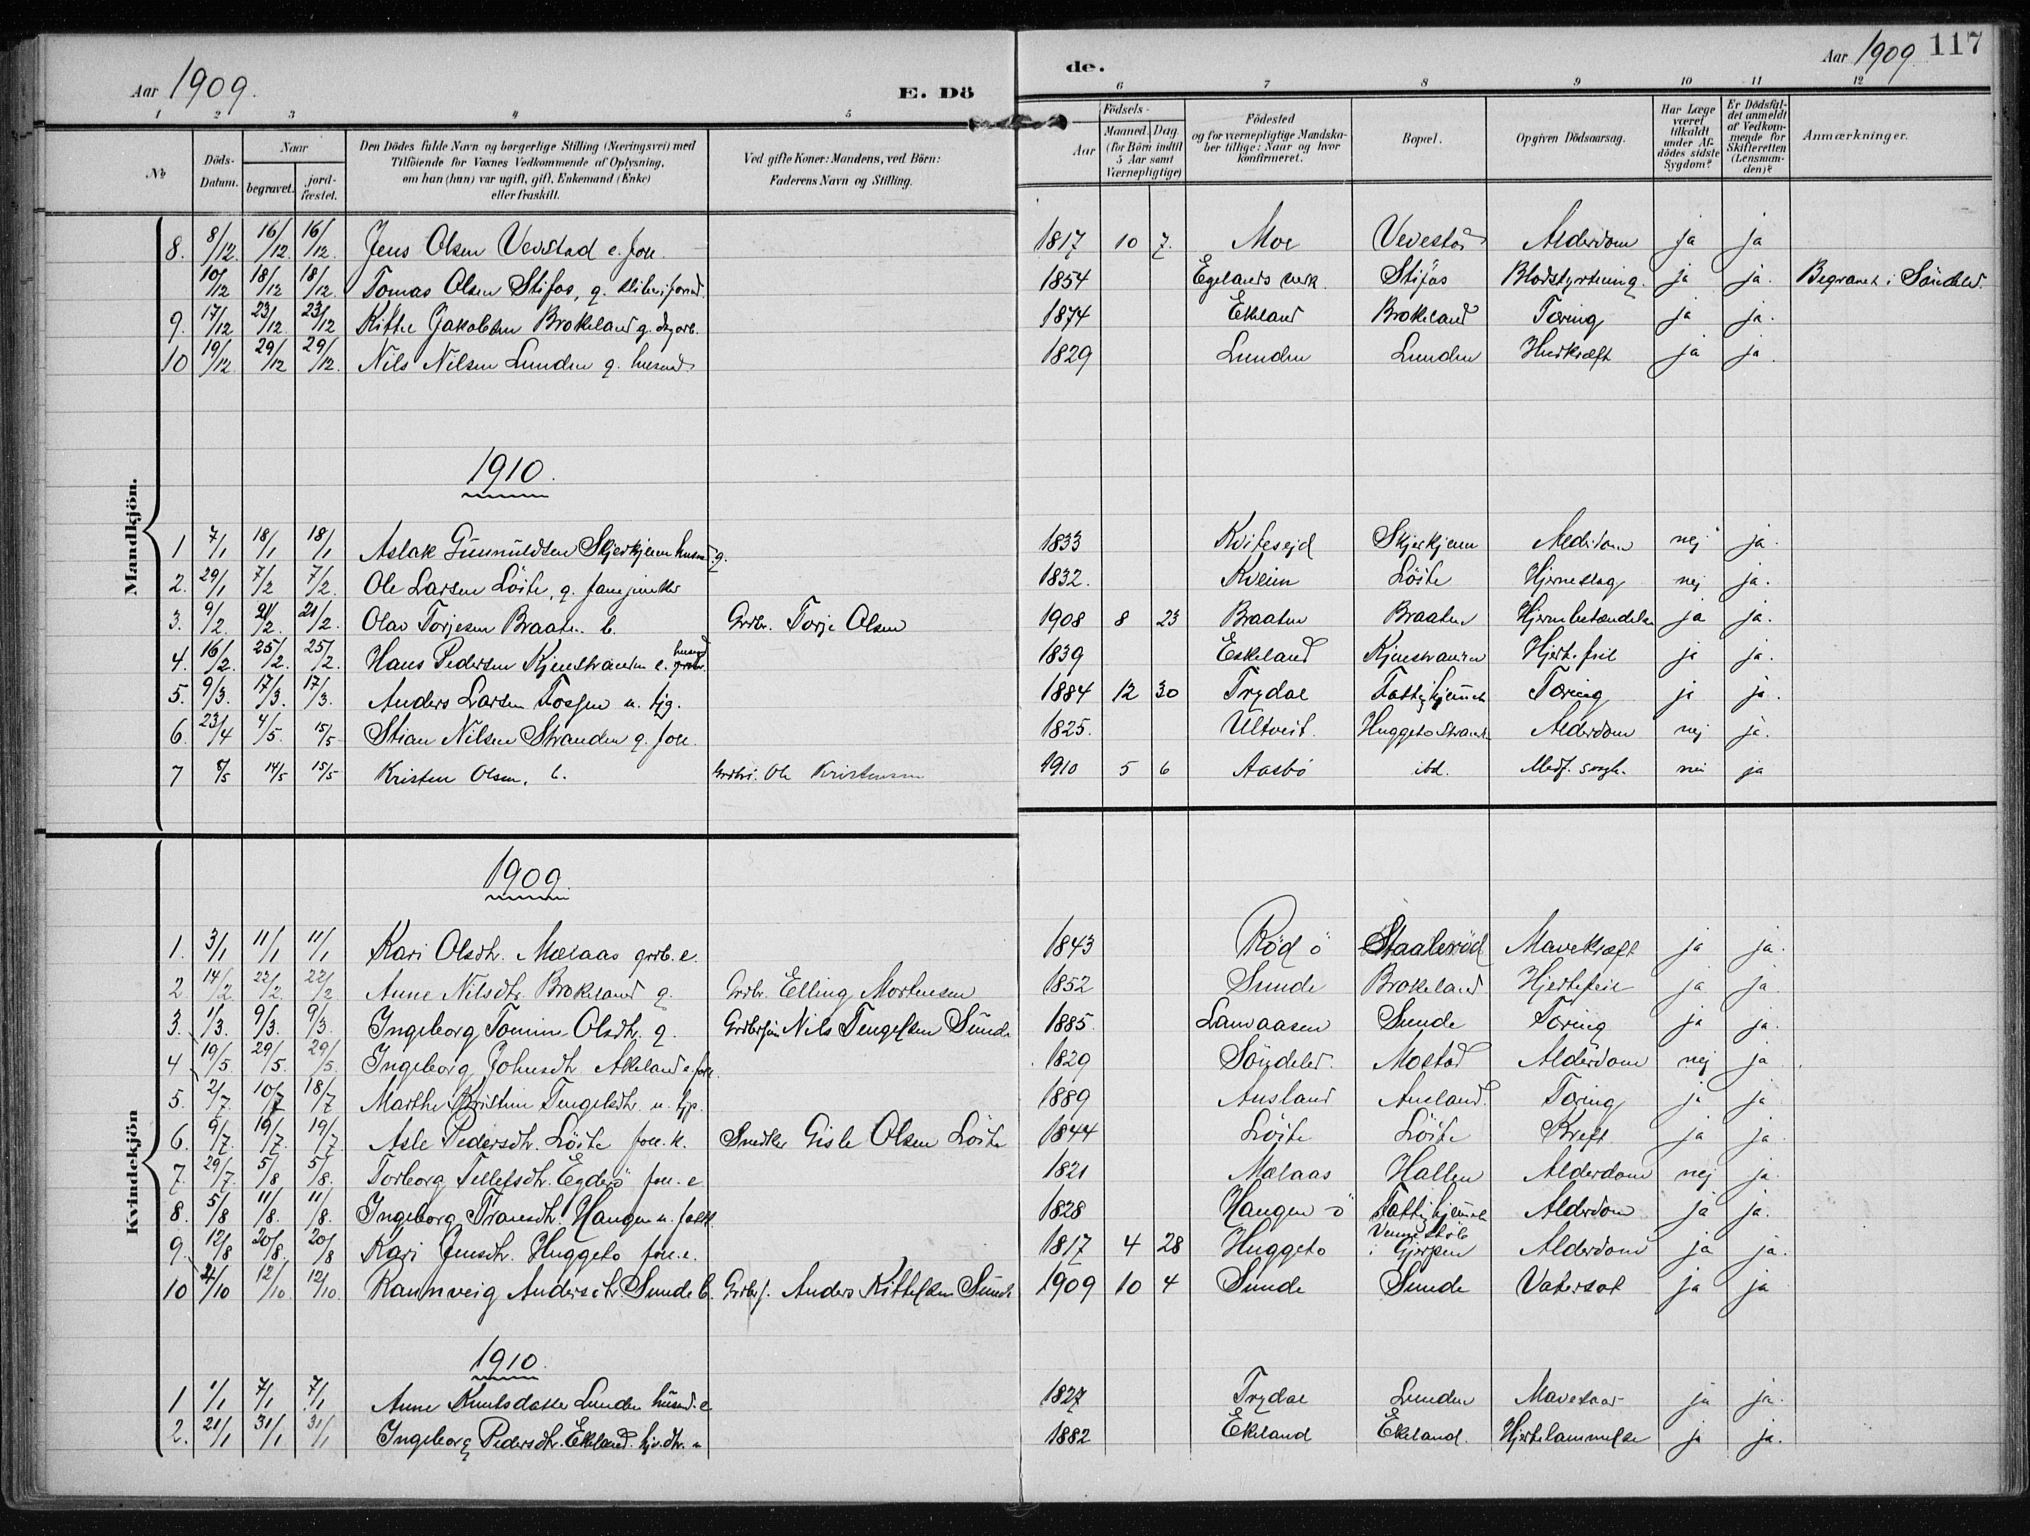 Aar 1909.
E. Dö
de.
Aar 1909
117
1 2 3 4 5 6 7 8 9 10 11 12
No
Döds-Datum.
Naar
begravet.
jord-fæstet.
Den Dödes fulde Navn og borgerlige Stilling (Næringsvei) med
Tilföiende for Voxnes Vedkommende af Oplysning,
om han (hun) var ugift, gift, Enkemand (Enke)
eller fraskilt.
Ved gifte Koner: Mandens, ved Börn:
Faderens Navn og Stilling.
Födsels-
Aar
Maaned. Dag.
(for Börn indtil
5 Aar samt
Værnepligtige)
Födested
og for værnepligtige Mandska-
ber tillige: Naar og hvor
konfirmeret.
Bopæl.
Opgiven Dödsaarsag.
Har Læge
været
tilkaldt
under Af-
dödes sidste
Sygdom?
Er Dödsfal-
det anmeldt
af Vedkom-
mende for
Skifteretten
(Lensman-
den)?
Anmærkninger.
Mandkjön.
8. 8/12. 16/12. 16/12. Jens Olsen Vevstad e. 1817 10 7. Moe Alderdom ja ja
10/12 18/12 18/12. Tomas Olsen Stifos, g. 1854 Egelands verk. Stifos Blodstyrtning. ja ja. Begravet i Söndeled.
9. 17/12. 23/12. 23/12 Kittel Jakobsen Brokeland g. dagarb. 1874 Ekland Brokeland Tæring ja ja.
10 19/12. 29/12 29/12. Nils Nilsen Lunden g. husmd. 1829 Lunden Lunden ja ja.
1910.
1 7/1 18/1 18/1 Aslak Gunnuldsen Skjerkjenn husmd. g. 1833 Kviteseid Skjerkjenn nej ja.
2. 29/1 7/2 7/2. Ole Larsen Löite, g. 1832. Kveim Löite Hjerneslag nej ja.
3. 9/2. 21/2. 21/2. Olav Torjesen Braaten. b. Grdbr. Torje Olsen 1908 8 23 Braaten Braaten ja ja.
4. 16/2. 25/2. 25/2. Hans Pedersen e. husmd 1839 Eskeland Hjertefeil ja ja.
5. 9/3. 17/3. 17/3. Anders Larsen Fossen u. 1884 12 30 Trydal Tæring ja ja.
6. 23/4 4/5. 15/5 Stian Nilsen Stranden g. 1825. Ultveit. Alderdom nej ja.
7 8/5 14/5 15/5 Kristen Olsen. b. Ole Kristensen 1910 5 6 Aasbö ibd. nei ja
Kvindekjön
1909
1. 3/1 11/1 11/1. Kari Olsdtr. Mælaas grb. e. 1843 Röd ö Staaleröd Mavekræft ja ja.
2. 14/2. 22/2. 22/2. Anne Nilsdtr. Brokeland g. Grdbr. Elling Mortensen 1852 Sunde Brokeland Hjertefeil ja ja.
3. 1/3. 9/3. 9/3. Ingeborg Tomine Olsdtr. g. Nils Tengelsen Sunde 1885. Sunde Tæring ja ja.
4 19/5 29/5. 29/5. Ingeborg Johnsdtr. Akeland e. 1829 Söndeled. Mostad Alderdom nej ja
5. 2/7. 10/7 18/7 Marthe Kristine Tengelsdtr. u. 1889 Ausland Ausland Tæring ja ja
6. 9/7. 19/7. 19/7. Asle Pedersdtr. Löite Snedker Gisle Olsen Löite 1844 Löite Löite Kreft ja ja.
7. 29/7. 5/8 5/8. Torborg Tellefsdtr. Egderö e 1821 Mælaas Hallen Alderdom nej ja.
8. 5/8 11/8. 11/8. Ingeborg Hangen u. 1828 Hangen ö Alderdom ja ja.
9. 12/8 20/8. 20/8 Kari Jensdtr. Huggeto e. 1817 4 28 Huggeto i Gjerpen Alderdom ja ja.
10 21/10 12/10 12/10. Raunveig Andersdtr. Sunde b. Anders Kittelsen Sunde 1909 10 4 Sunde Sunde Vatersot ja ja
1910.
1 1/1 7/1 7/1. Anne Knutsdatter Lunden husmd. e 1827 Trydal Lunden Mavesaar ja ja.
2. 21/1 31/1 31/1 Ingeborg Pedersdtr. Ekeland. u 1882 Ekeland Ekeland. Hjertelammelse ja ja.